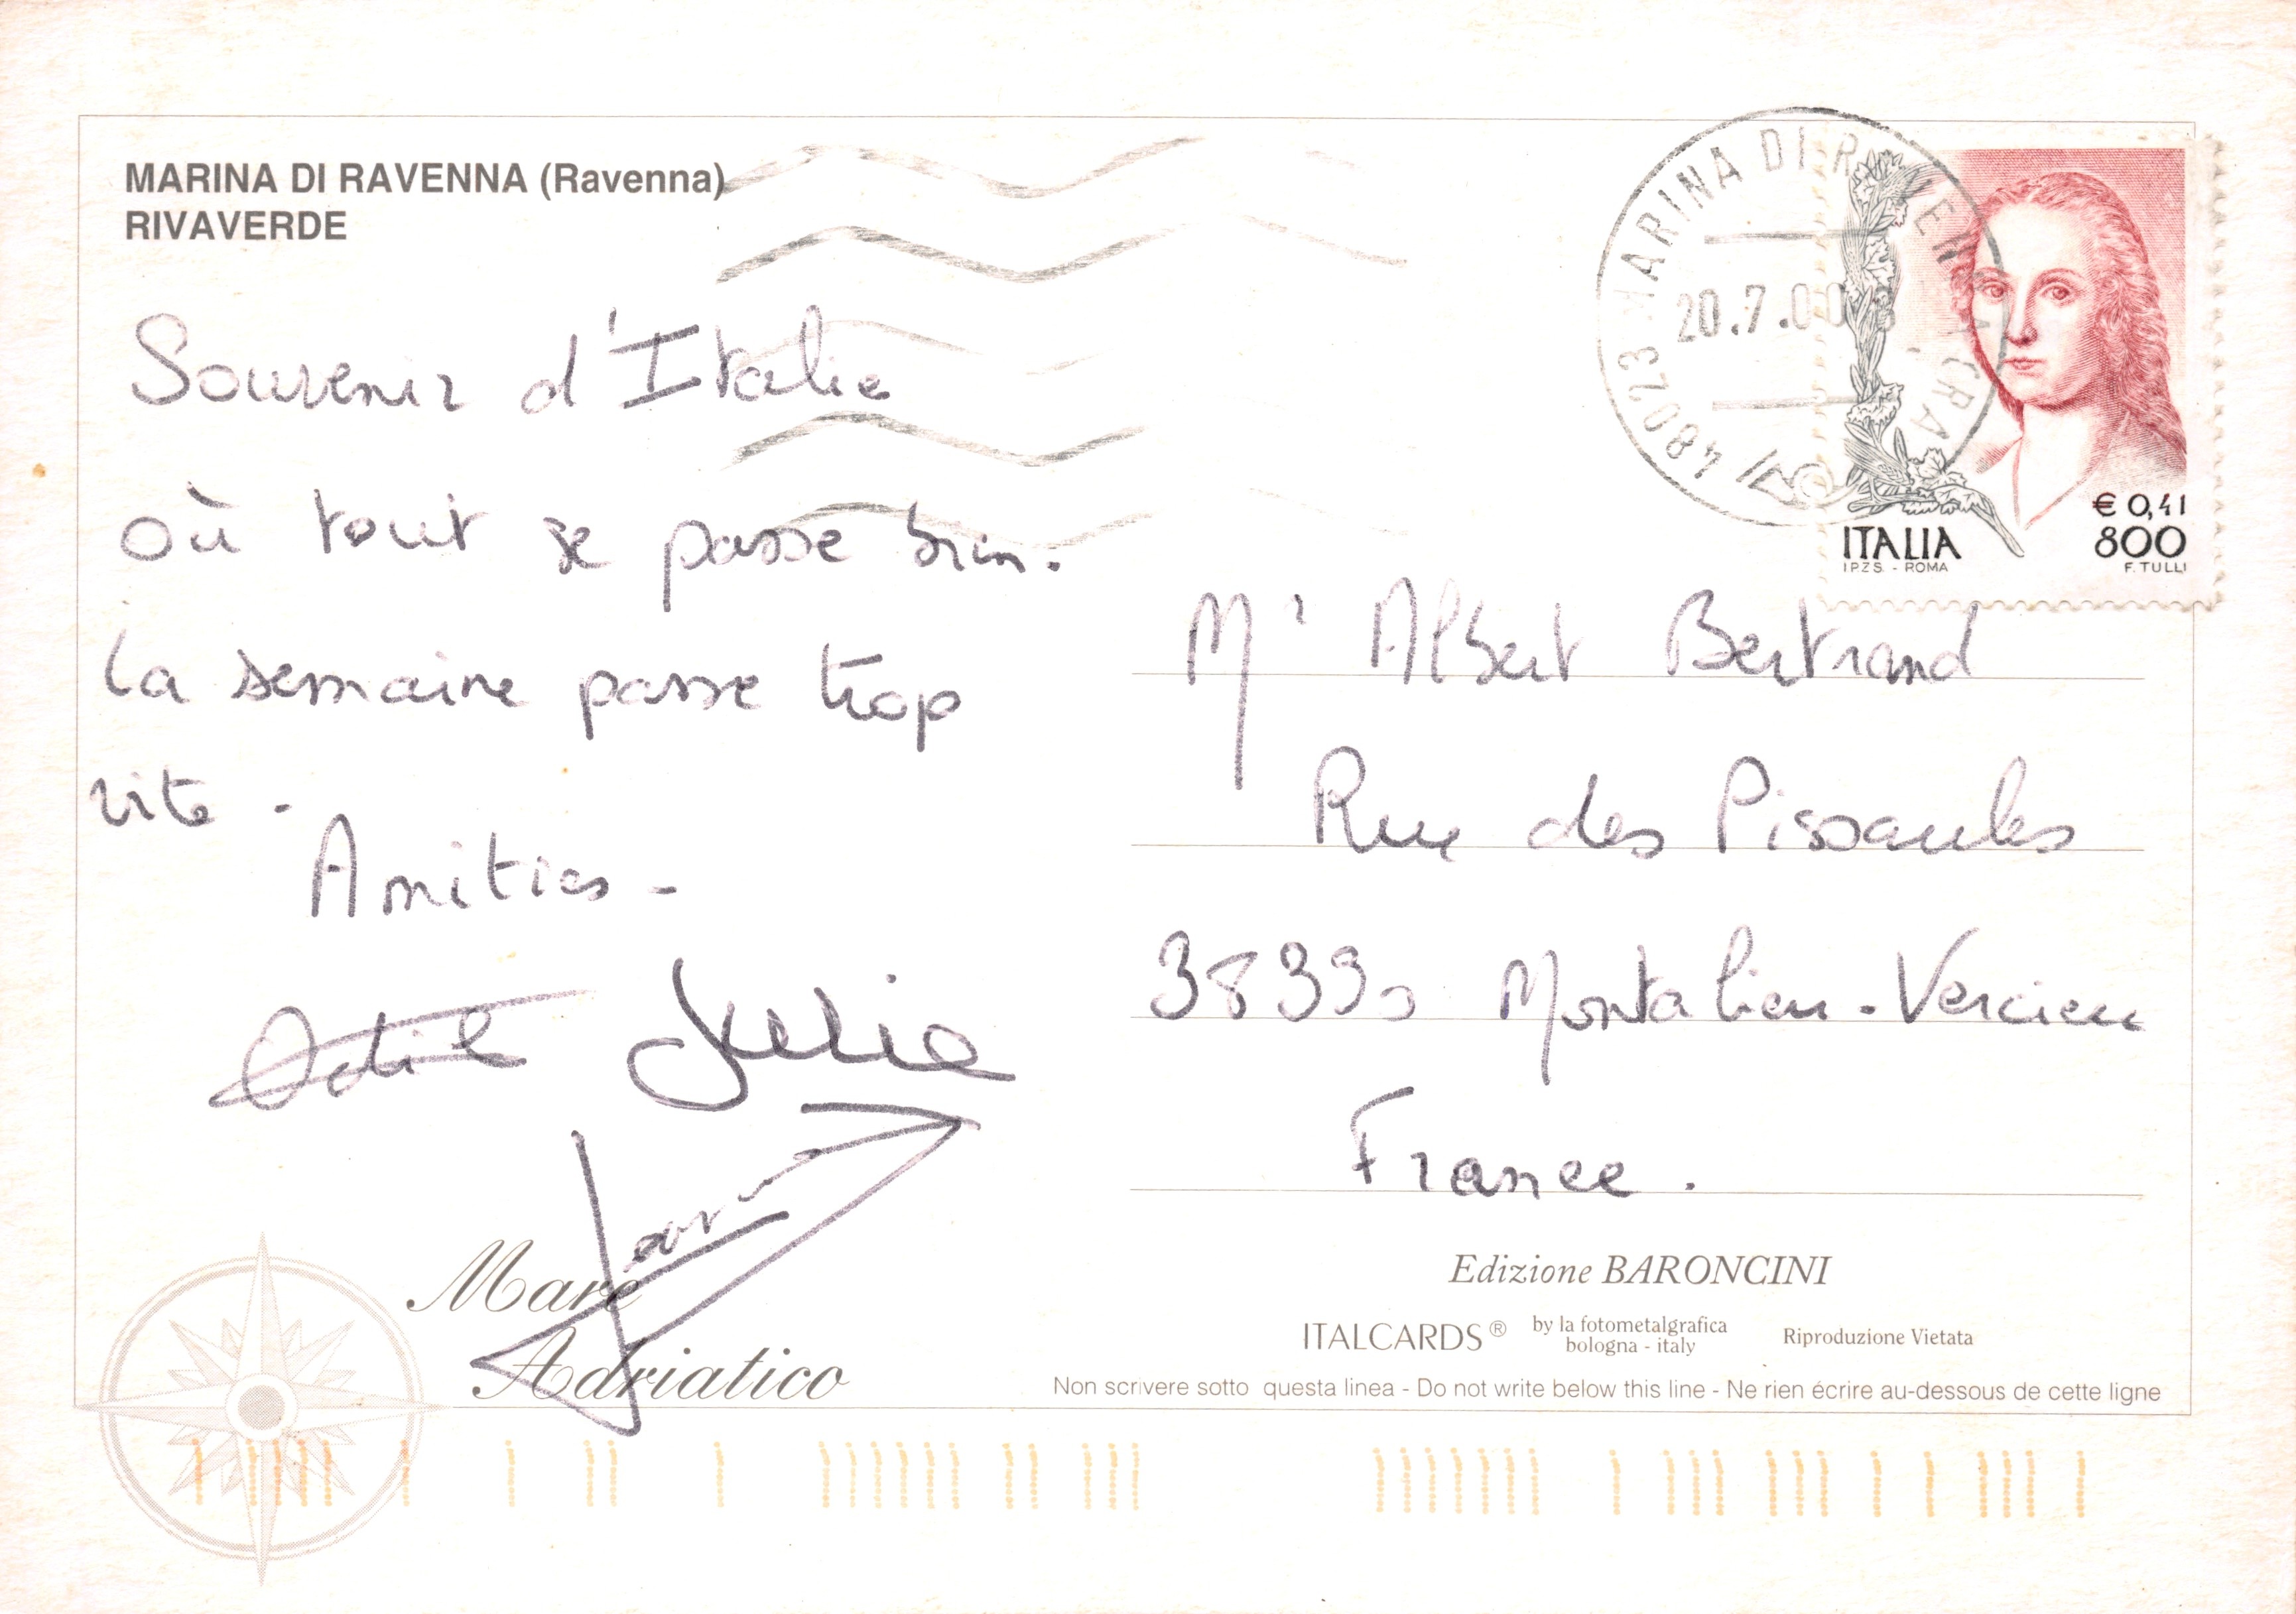 MARINA DI RAVENNA (Ravenna)
RIVAVERDE
Souvenir d'Italie
où tout se passe bien.
la semaine passe trop
vite.
Amitiés -
Odile Julie
Mare
Adriatico
48023 MARINA DI RAVENNA (RA)
20.7.00
€ 0,41
800
ITALIA
I.P.Z.S. - ROMA
F. TULLI
Mr Albert Bertrand
Rue des Pissaules
38390 Montalieu-Vercieu
France.
Edizione BARONCINI
ITALCARDS® by la fotometalgrafica
bologna - italy
Riproduzione Vietata
Non scrivere sotto questa linea - Do not write below this line - Ne rien écrire au-dessous de cette ligne